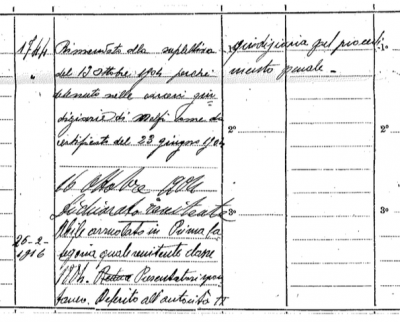 1744 Rimandato alla suplettiva
del 13 Ottobre 1904 perché
detenuto nelle carceri giu
diziarie di Melfi come da
certificato del 23 giugno 904
16 Ottobre 904
Dichiarato Renitente
26-2-
1916
Abile arruolato in Prima Ca
tegoria quale renitente classe
1884. Presentatosi spon
taneo. Deferito all'autorità
giudiziaria pel procedi
mento penale.
1°
2°
3°